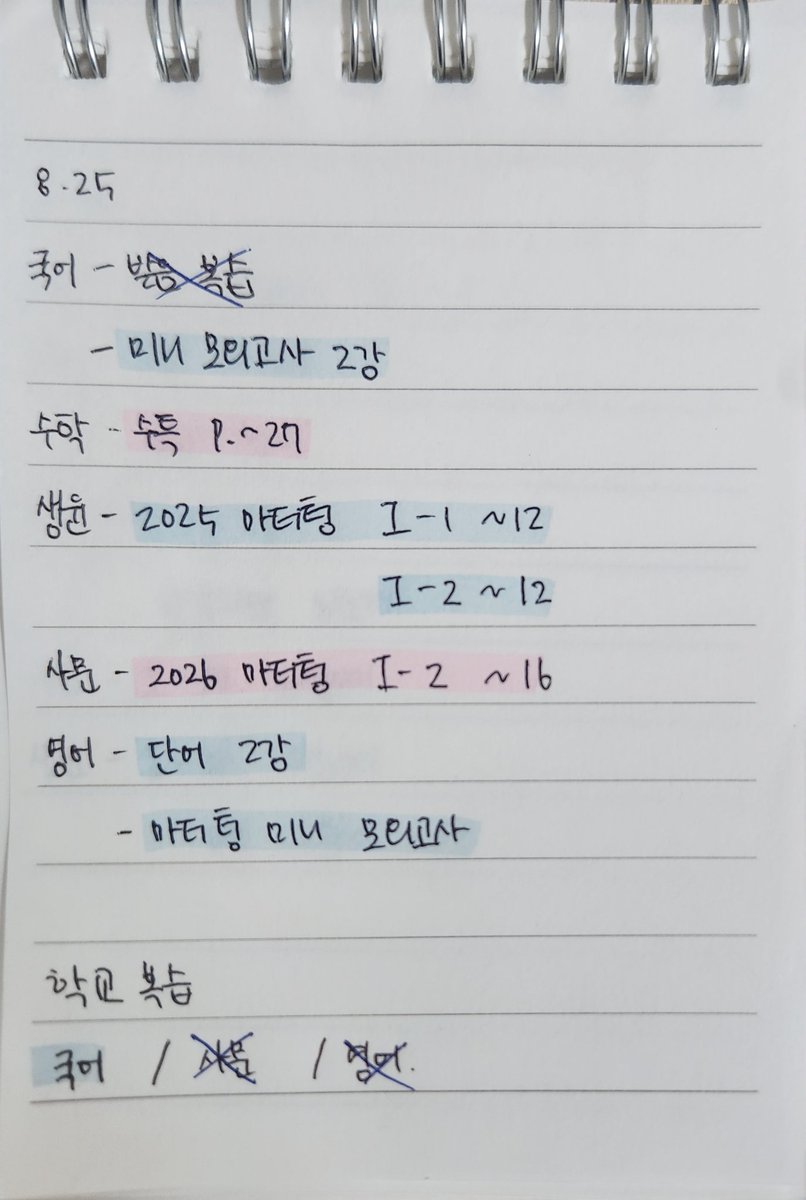 8.25
국어 - 발음 복습
- 미니 모의고사 2강
수학 - 수특 P.~27
생윤 - 2025 마더텅 I-1 ~12
I-2 ~12
사문 - 2026 마더텅 I-2 ~16
영어 - 단어 2강
- 마더텅 미니 모의고사
학교 복습
국어 / 사문 / 영어.